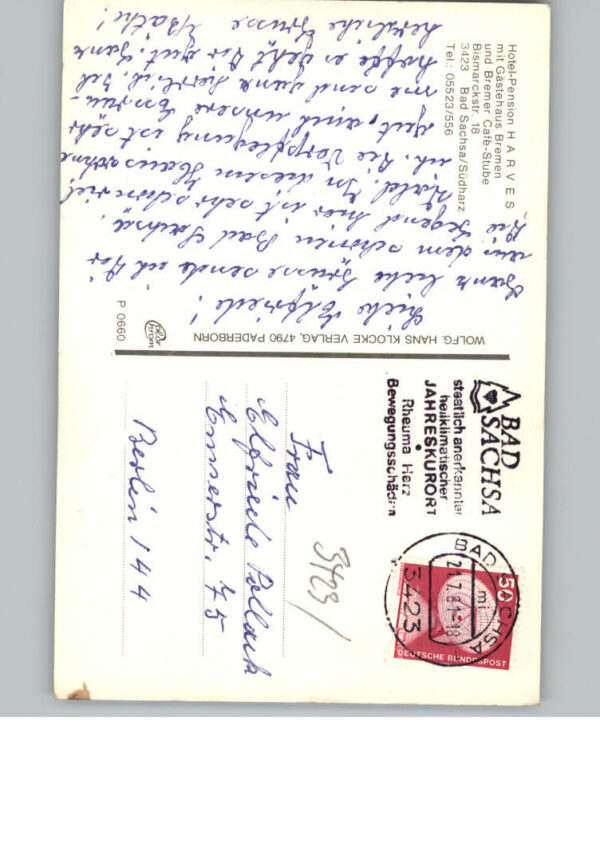 Hotel-Pension HARVES
mit Gästehaus Bremen
und Bremer Café-Stube
Bismarckstr. 18
3423 Bad Sachsa/Südharz
Tel.: 05523/556
Liebe Elfriede!
Ganz liebe Grüsse sende ich Dir
aus dem schönen Bad Sachsa.
Die Gegend hier ist sehr schön viel
Wald. In diesem Haus wohne
ich. Die Verpflegung ist sehr
gut, und unsere
me sind ganz herrlich. Ich
hoffe es geht Dir gut. Ganz
herzliche Grüsse Käthe!
P 0660
color chrom
WOLFG. HANS KLOCKE VERLAG, 4790 PADERBORN
BAD SACHSA
staatlich anerkannter
heilklimatischer
JAHRESKURORT
Rheuma Herz
Bewegungsschäden
BAD SACHSA
mi
21.7.81-18
3423
50
DEUTSCHE BUNDESPOST
3423/
Frau
Elfriede Pollack
Emserstr. 75
Berlin 144